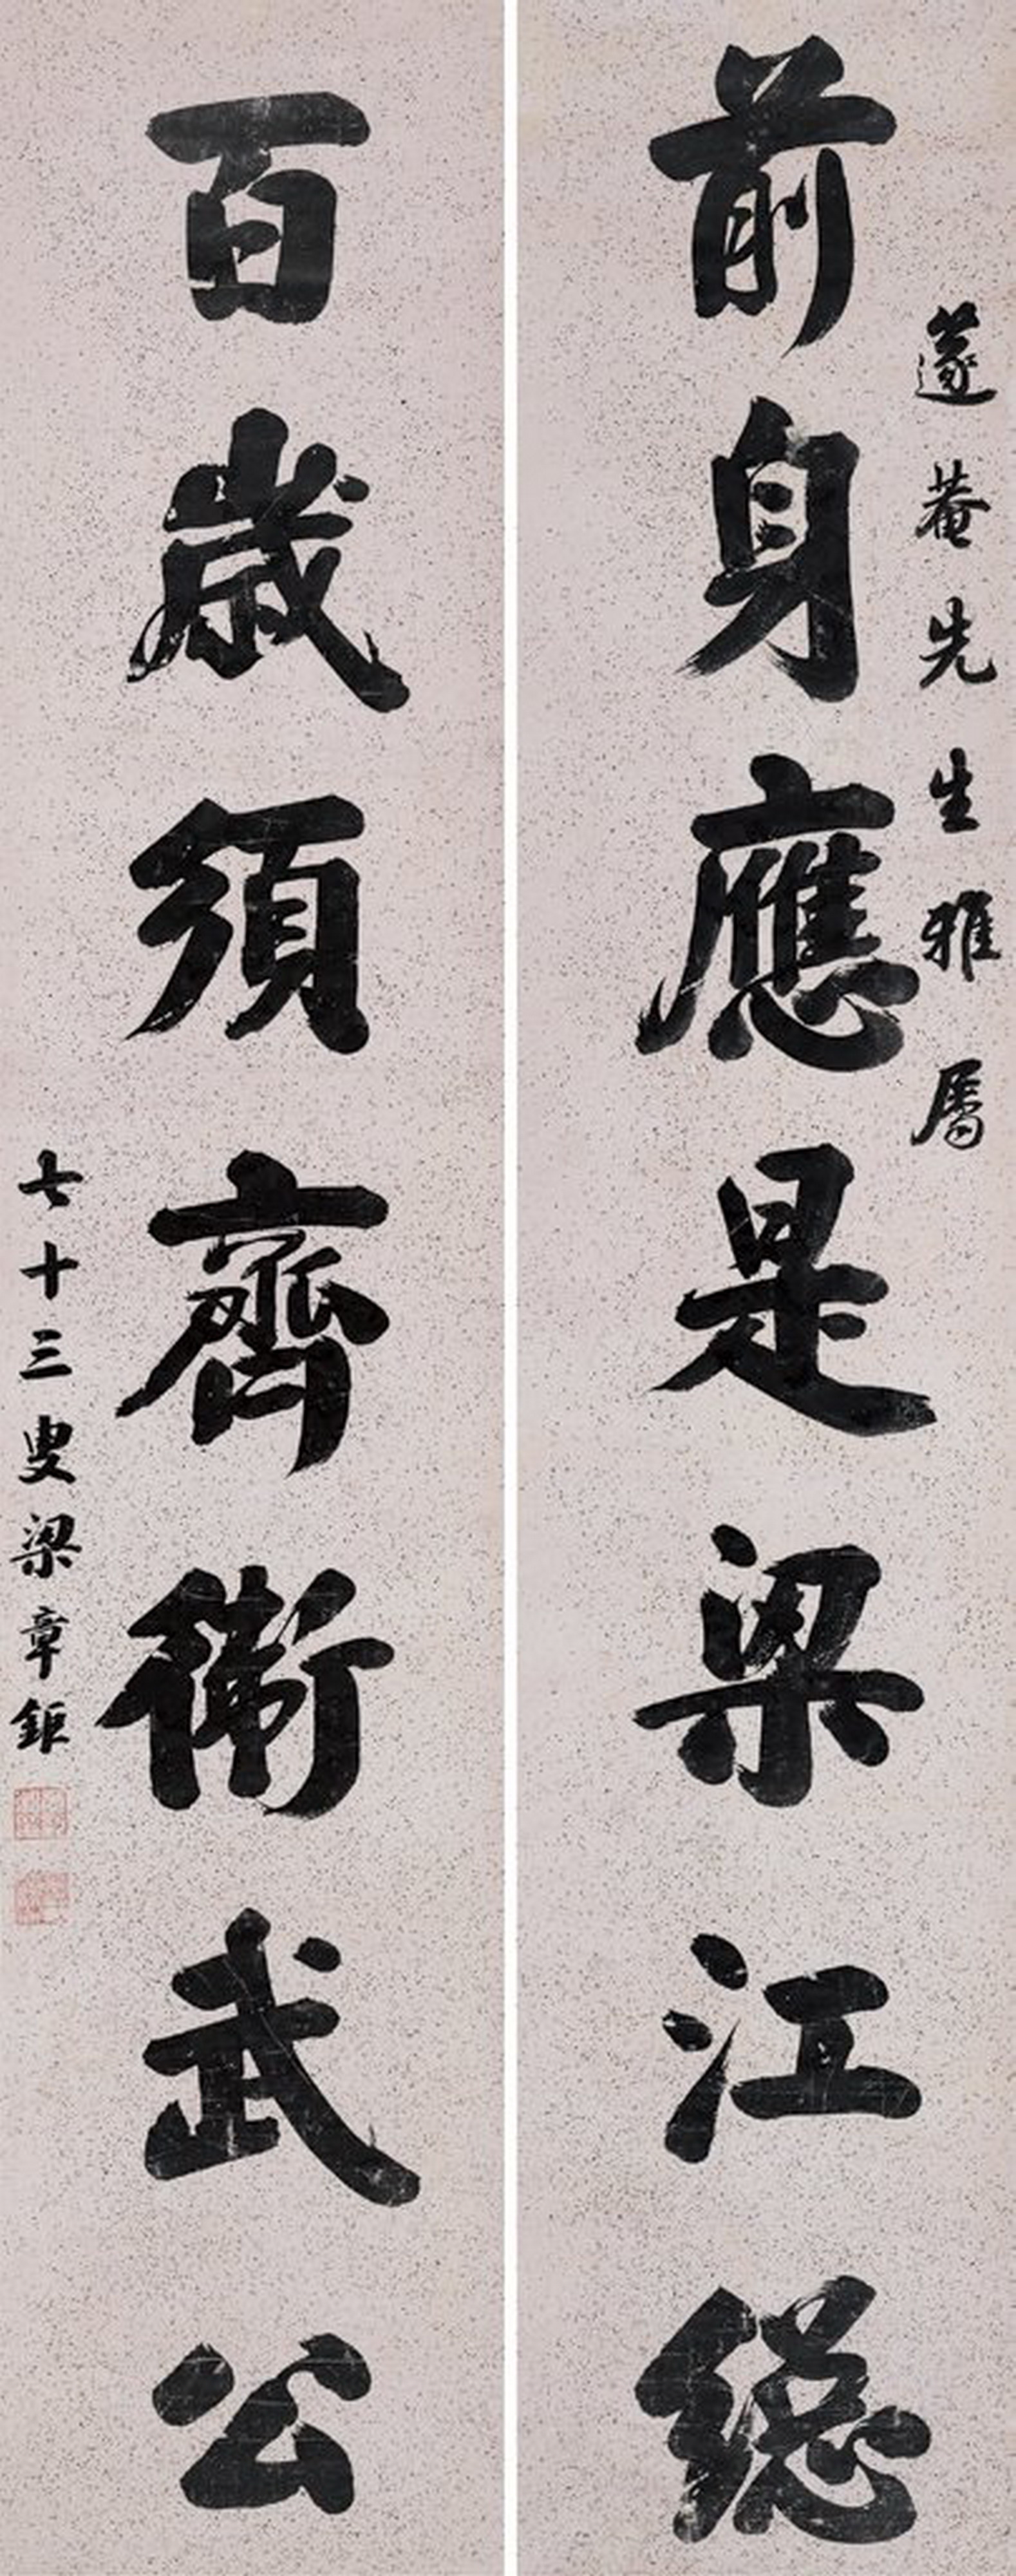 蓫菴先生雅屬
前身應是梁江總
百歲須齊衛武公
七十三叟梁章鉅